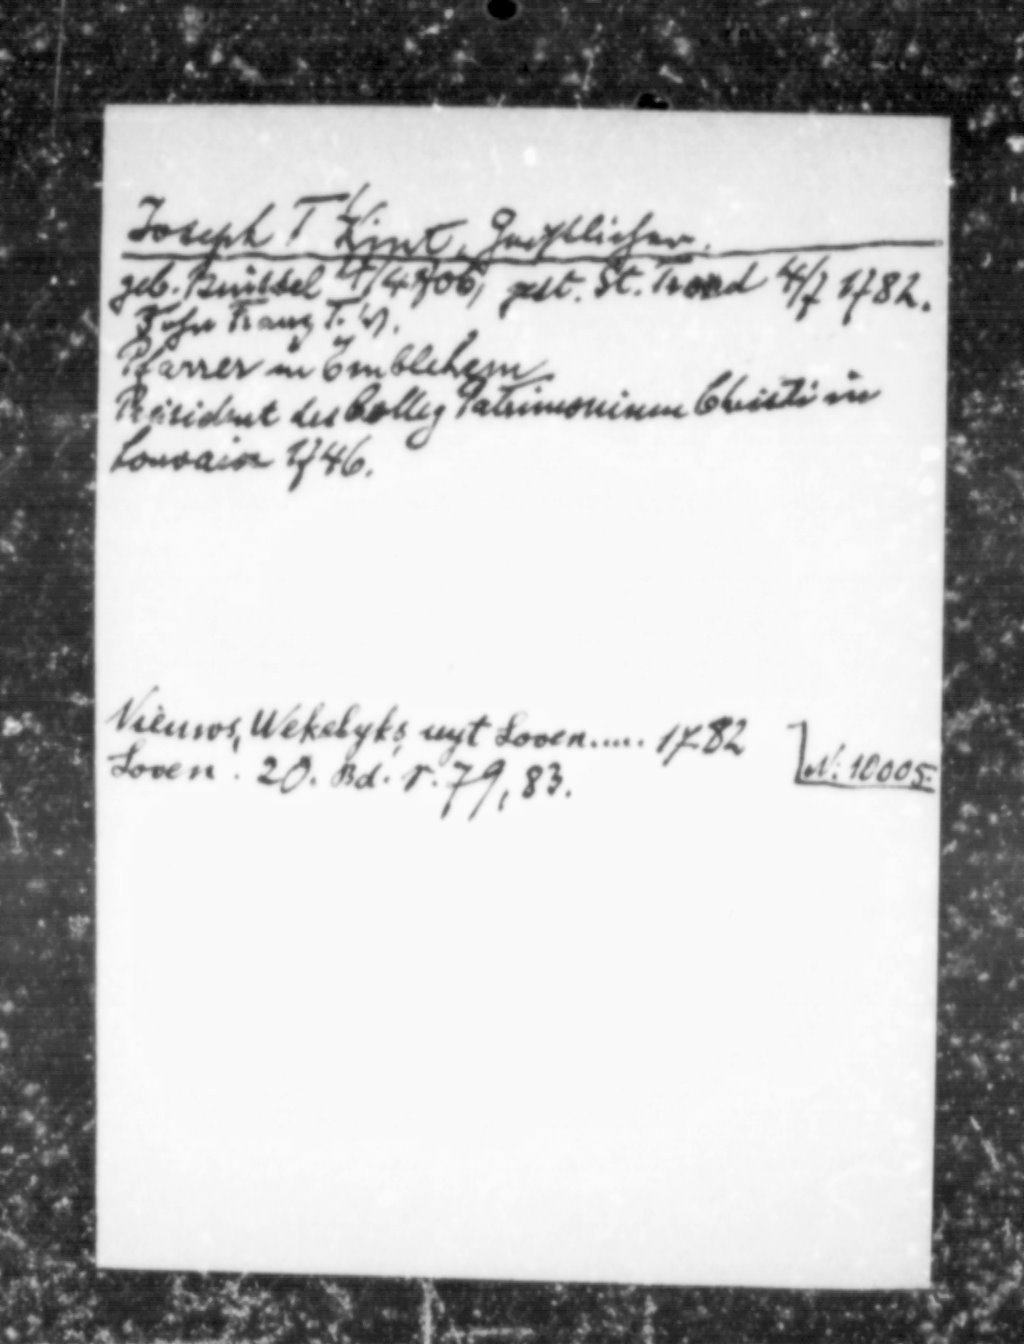 Joseph T'Kint, Geistlicher.
geb. Brüssel 4/4 1706, gest. St. Trond 4/7 1782.
Sohn Franz T.'s.
Pfarrer in Emblehem
Präsident des Colleg Patrimonium Christi in
Louvain 1746.
Nieuws, Wekelyks uyt Loven..... 1782
Loven. 20. Bd. S. 79, 83.
N. 10005.